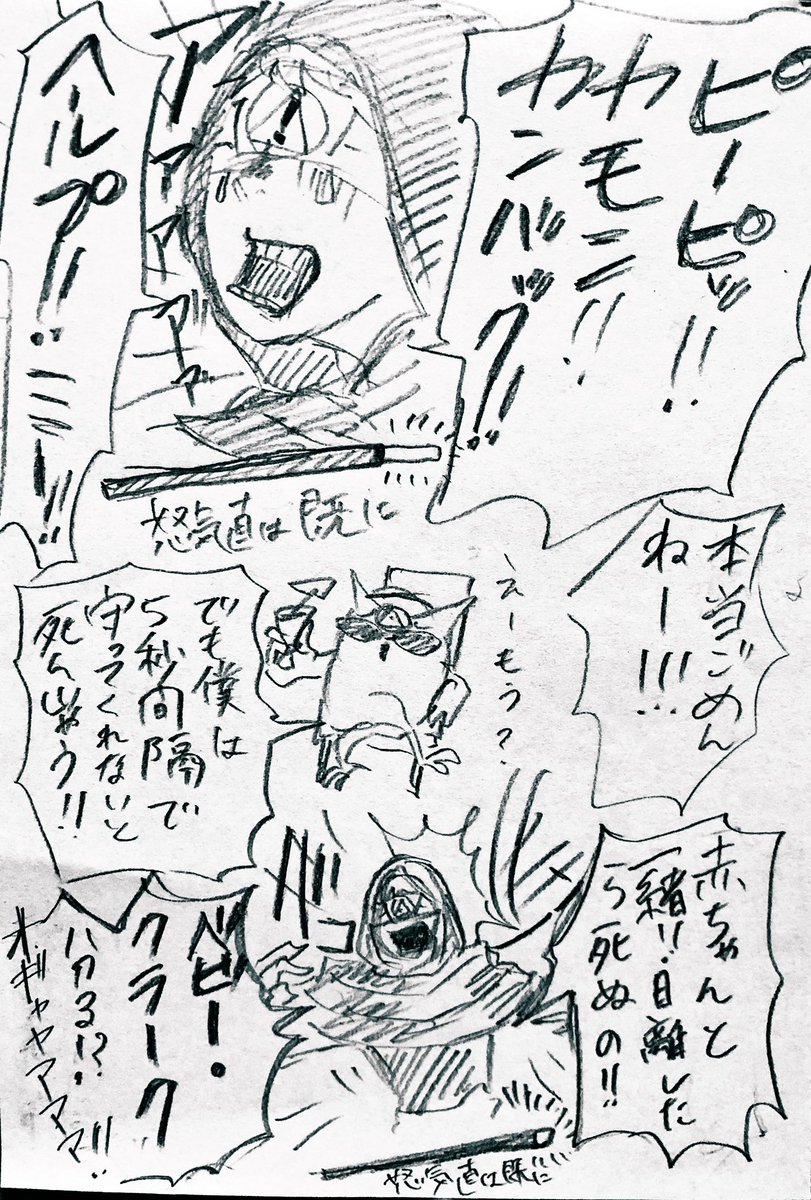 ピーピッ!!
カモン!!
カンバック!!
アァァァァァ
ヘールプ!!・ミー!!
怒気直は既に
本当ごめん
ねー!!!
えーもう？
でも僕は
5秒間隔で
守ってくれないと
死んじゃう!!
赤ちゃんと
一緒!!・目離した
ら死ぬの!!
ベビー・
クラーク
分る!?・
オギャャアアアア!!
怒気直は既に